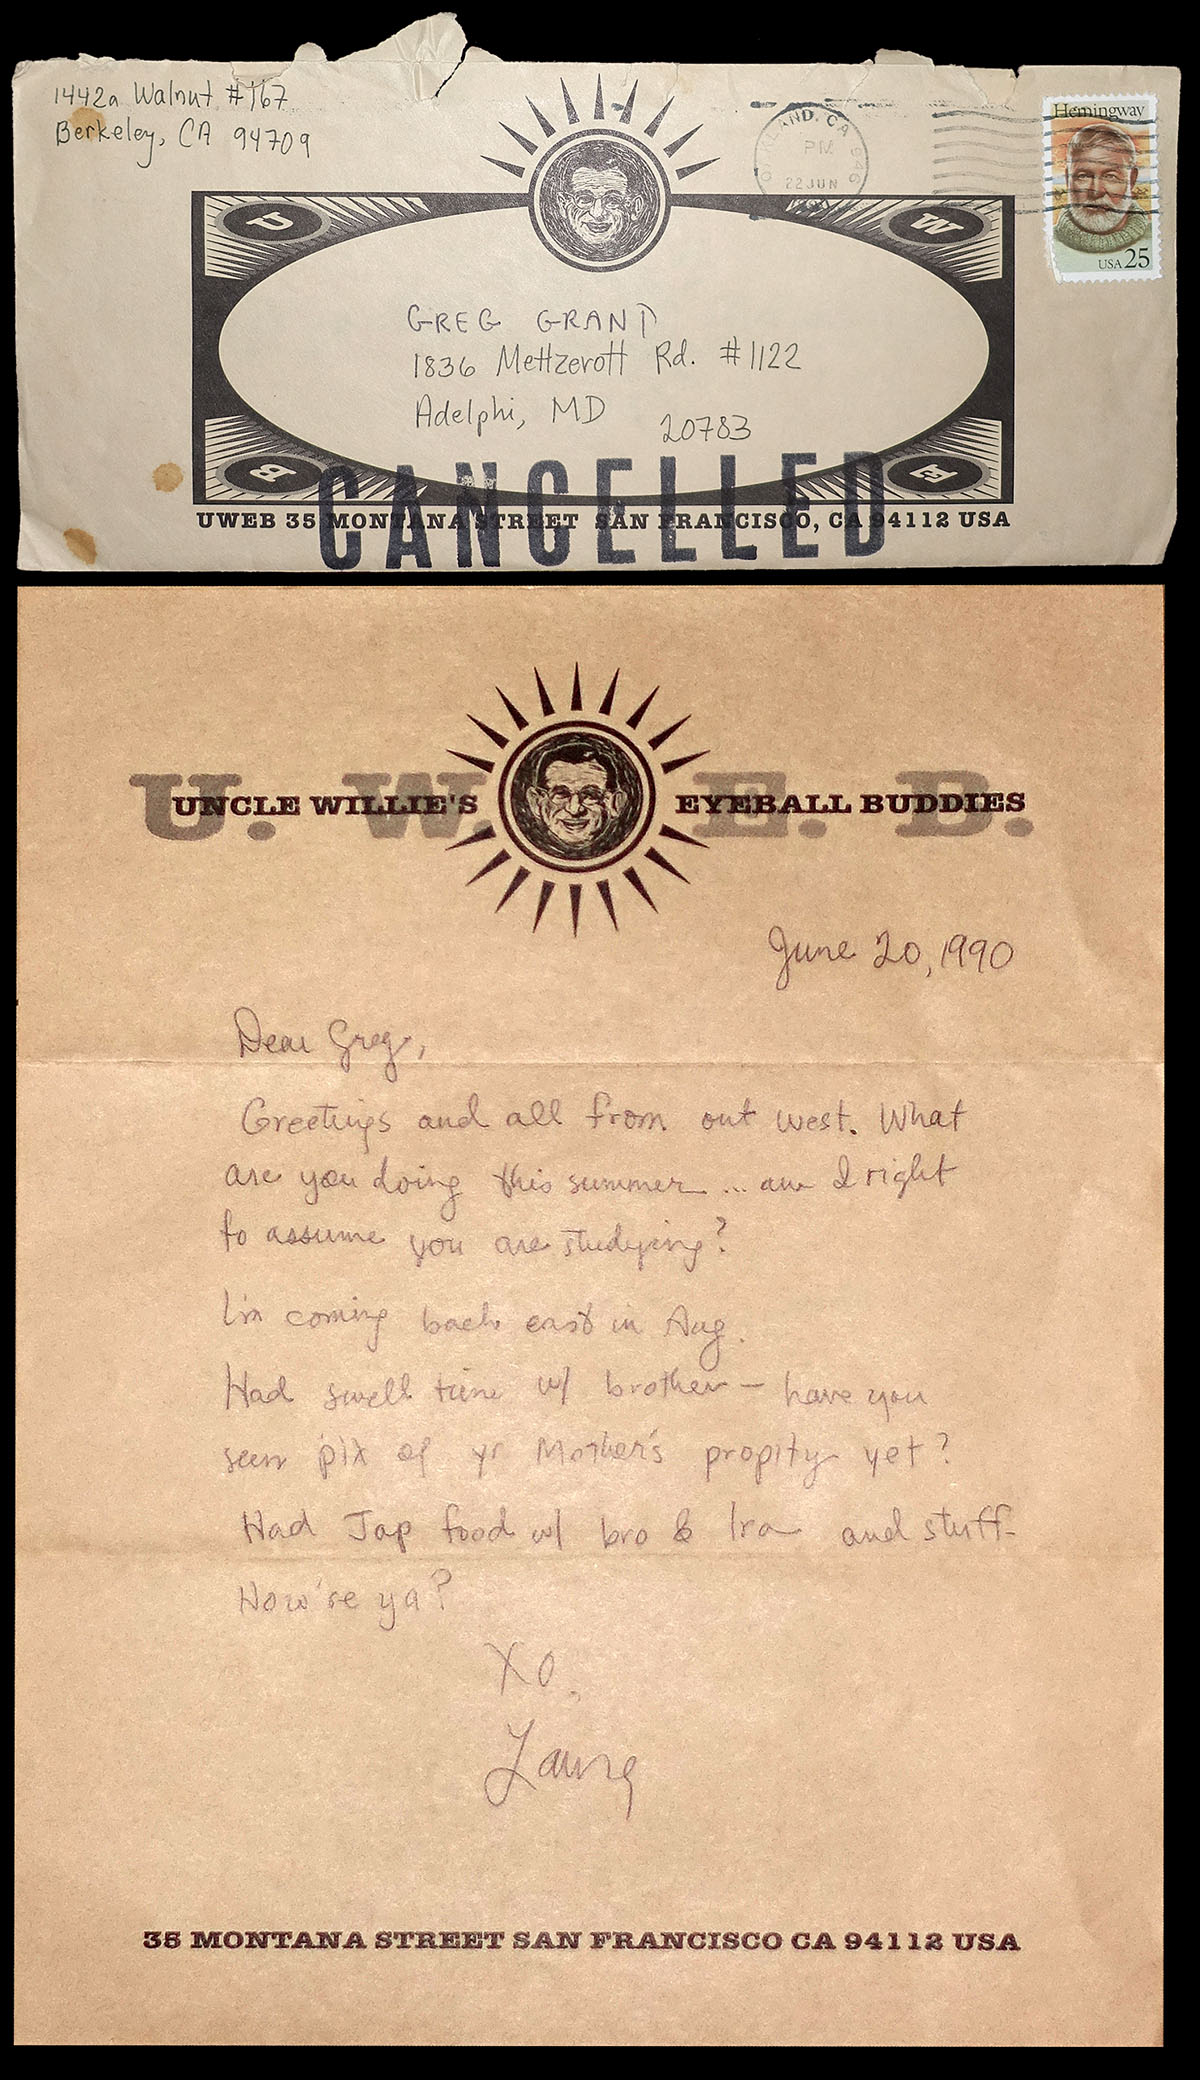 1442a Walnut #167
Berkeley, CA 94709
OAKLAND, CA 946
PM
22 JUN
Hemingway
USA 25
U
W
GREG GRANT
1836 Mettzerott Rd. #1122
Adelphi, MD 20783
B
E
CANCELLED
UWEB 35 MONTANA STREET SAN FRANCISCO, CA 94112 USA
U. W. E. B.
UNCLE WILLIE'S EYEBALL BUDDIES
June 20, 1990
Dear Greg,
Greetings and all from out west. What
are you doing this summer ... am I right
to assume you are studying?
I'm coming back east in Aug.
Had swell time w/ brother — have you
seen pix of yr Mother's propity yet?
Had Jap food w/ bro & Ira and stuff.
How're ya?
XO,
Laura
35 MONTANA STREET SAN FRANCISCO CA 94112 USA